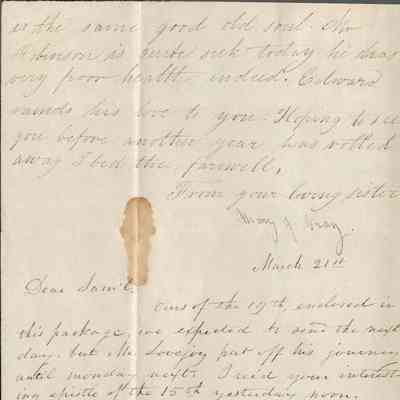 is the same good old soul. Mr
Robinson is quite sick today he has
very poor health indeed. Edward
sends his love to you. Hoping to see
you before another year has rolled
away I bid the, farewell,
From your loving sister
Mary J. Gray.
March 21st
Dear Sam'l.
Ours of the 19th, enclosed in
this package, we expected to send the next
day, but Mr Lovejoy put off his journey
until monday next. I recd your interest-
ing epistle of the 15th yesterday noon.